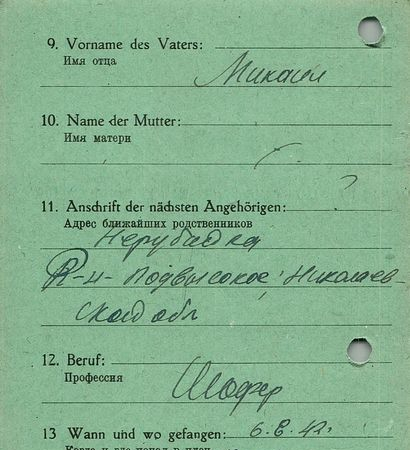 9. Vorname des Vaters:
Имя отца
Микаил
10. Name der Mutter:
Имя матери
?
11. Anschrift der nächsten Angehörigen:
Адрес ближайших родственников
Нерубайка
Р-н- Подвысокое, Николаев-
ской обл
12. Beruf:
Профессия
Шофер
13 Wann und wo gefangen: 6.8.42.
Когда и где попал в плен